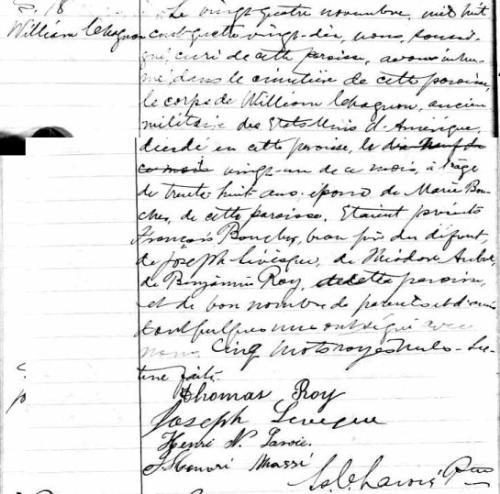 S. 18
William Chagnon
Le vingt quatre novembre, mil huit
cent quatre vingt-dix, nous, soussi-
gné, curé de cette paroisse, avons inhu-
mé dans le cimetière de cette paroisse,
le corps de William Chagnon, ancien
militaire des Etats Unis d'Amérique,
décédé en cette paroisse, le dix neuf de
ce mois vingt-un de ce mois, à l'âge
de trente huit ans, époux de Marie Bou-
cher, de cette paroisse. Etaient présents
François Boucher, beau père du défunt,
de Joseph Lévesque, de Médore
de Benjamin Roy, de cette paroisse,
et de bon nombre de parents et d'amis
dont quelques uns ont signé avec
nous. Cinq mots rayés nuls. Lec-
ture faite.
Thomas Roy
Joseph Leveque
Henri N. Lavoie.
J. Honoré Massé
Ptre